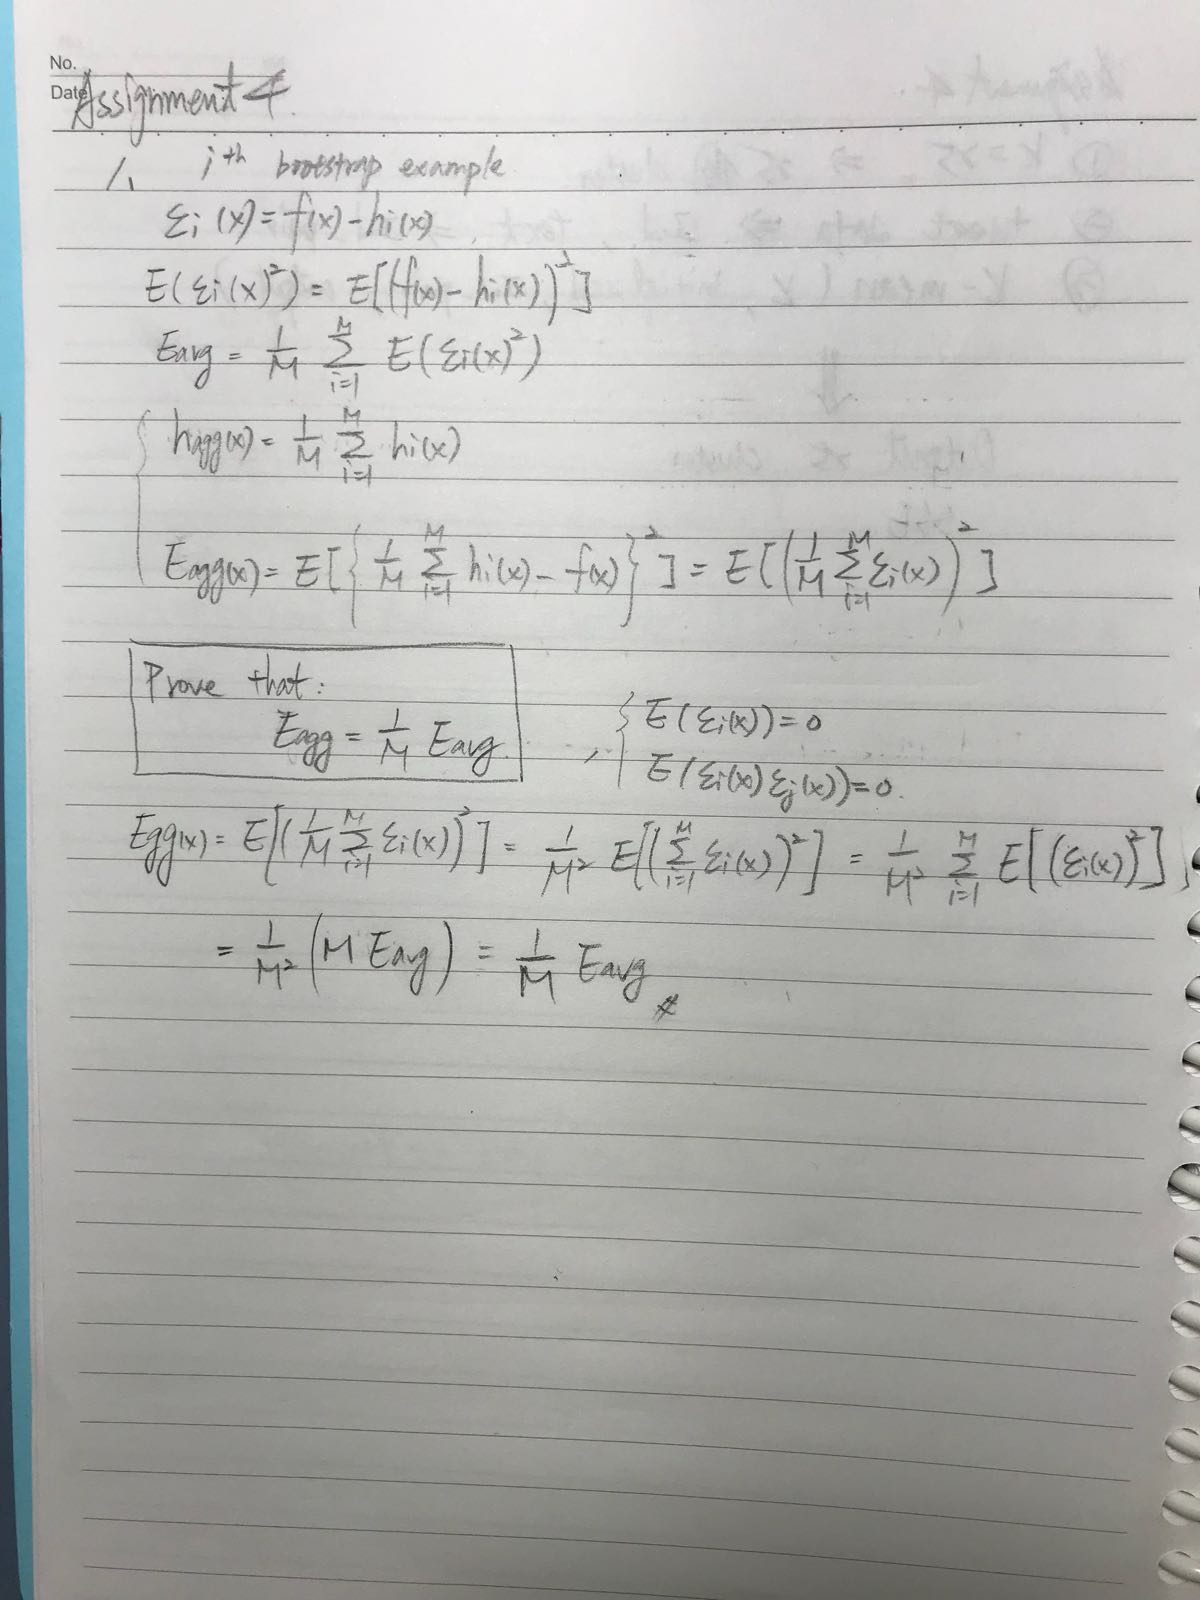 No.
Date
Assignment 4.
1、 i^th bootstrap example
Σi(x) = f(x) - hi(x)
E(Σi(x)²) = E[(f(x) - hi(x))²]
Eavg = 1/M Σ_{i=1}^{M} E(Σi(x)²)
hagg(x) = 1/M Σ_{i=1}^{M} hi(x)
Eagg(x) = E[{1/M Σ_{i=1}^{M} hi(x) - f(x)}²] = E[(1/M Σ_{i=1}^{M} Σi(x))²]
Prove that:
Eagg = 1/M Eavg.
, { E(Σi(x)) = 0
E(Σi(x) Σj(x)) = 0.
Egg(x) = E[(1/M Σ_{i=1}^{M} Σi(x))²] = 1/M² E[(Σ_{i=1}^{M} Σi(x))²] = 1/M² Σ_{i=1}^{M} E[(Σi(x))²]
= 1/M² (M Eavg) = 1/M Eavg #